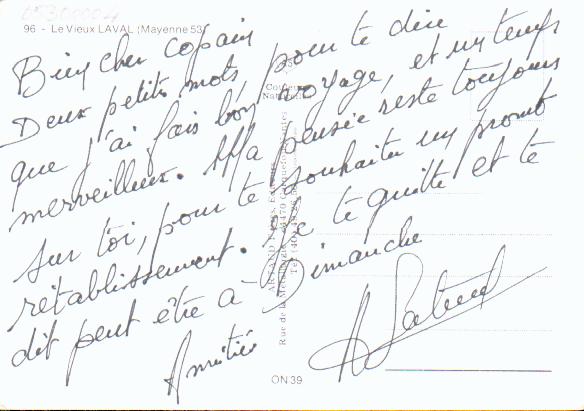 96 - Le Vieux LAVAL (Mayenne 53)
Bien cher copain
Deux petits mots, pour te dire
que j'ai fais bon voyage, et un temps
merveilleux. Ma pensée reste toujours
sur toi, pour te souhaiter un prompt
rétablissement. Je te quitte et te
dit peut être à Dimanche
Amitiés
ON 39